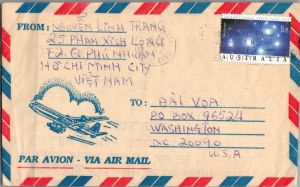 FROM: NGUYỄN LINH TRANG
25 PHAN XÍCH LONG
F2. Q PHÚ NHUẬN
HỒ CHÍ MINH CITY
VIỆT NAM
AUSTRALIA
TO: ĐÀI VOA
PO BOX 96524
WASHINGTON
DC 20090
U.S.A
PAR AVION - VIA AIR MAIL